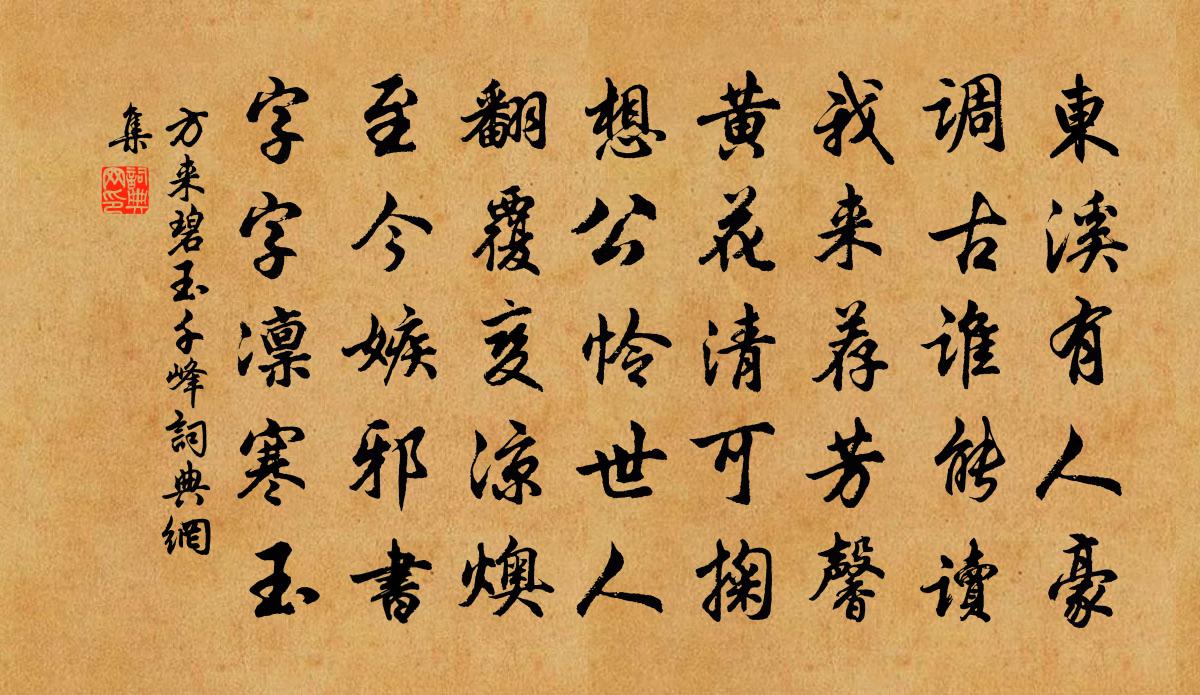 東溪有人豪
調古谁能讀
我来荐芳馨
黄花清可掬
想公怜世人
翻覆变凉燠
至今嫉邪書
字字凛寒玉
方来碧玉千峰詞典網
集
詞典网印